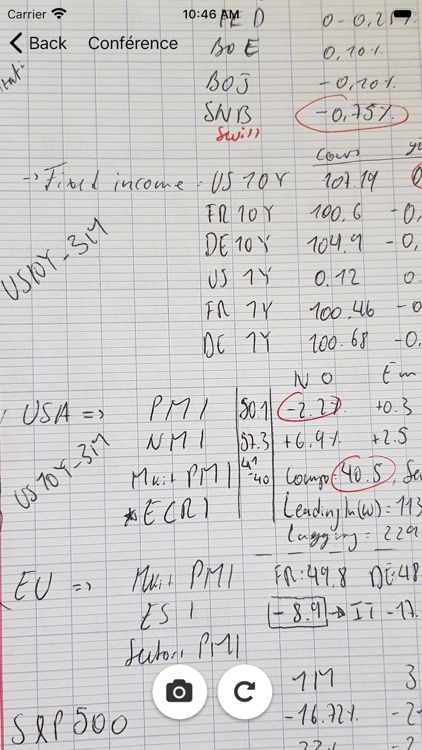 Carrier 10:46 AM
Back Conférence
BOE 0,10%
BOJ -0,10%
SNB -0,75%
Swiss
Cours
-> Fixed income - US 10Y 107.19
FR 10Y 100.6 -0,
DE 10Y 104.9 -0,
US 1Y 0.12 0.
FR 1Y 100.46 -0
DE 1Y 100.68 -0.
US10Y_3M
NO Em
USA => PMI 50.1 -2.2% +0.3
NMI 57.3 +6.9% +2.5
US10Y_3M
Mkit PMI Compo: 40.5, Se
* ECRI Leading In(w): 113
Lagging = 229
EU => Mkit PMI FR: 49.8 DE: 48
ESI -8.9 -> IT -17.
Sectors PMI
1M 3
S&P500 -16.72% -2